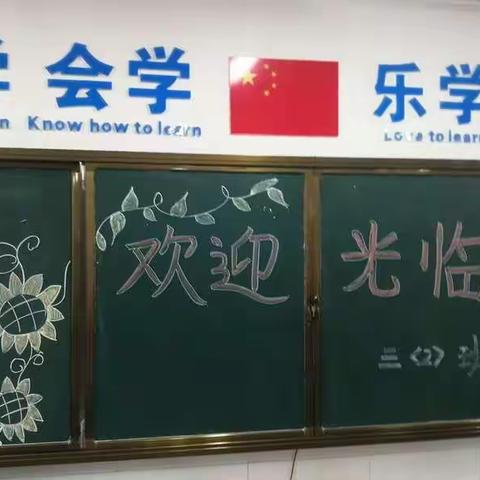 学 会学 乐学
n Know how to learn Love to learn
欢迎 光临
三〈2〉班